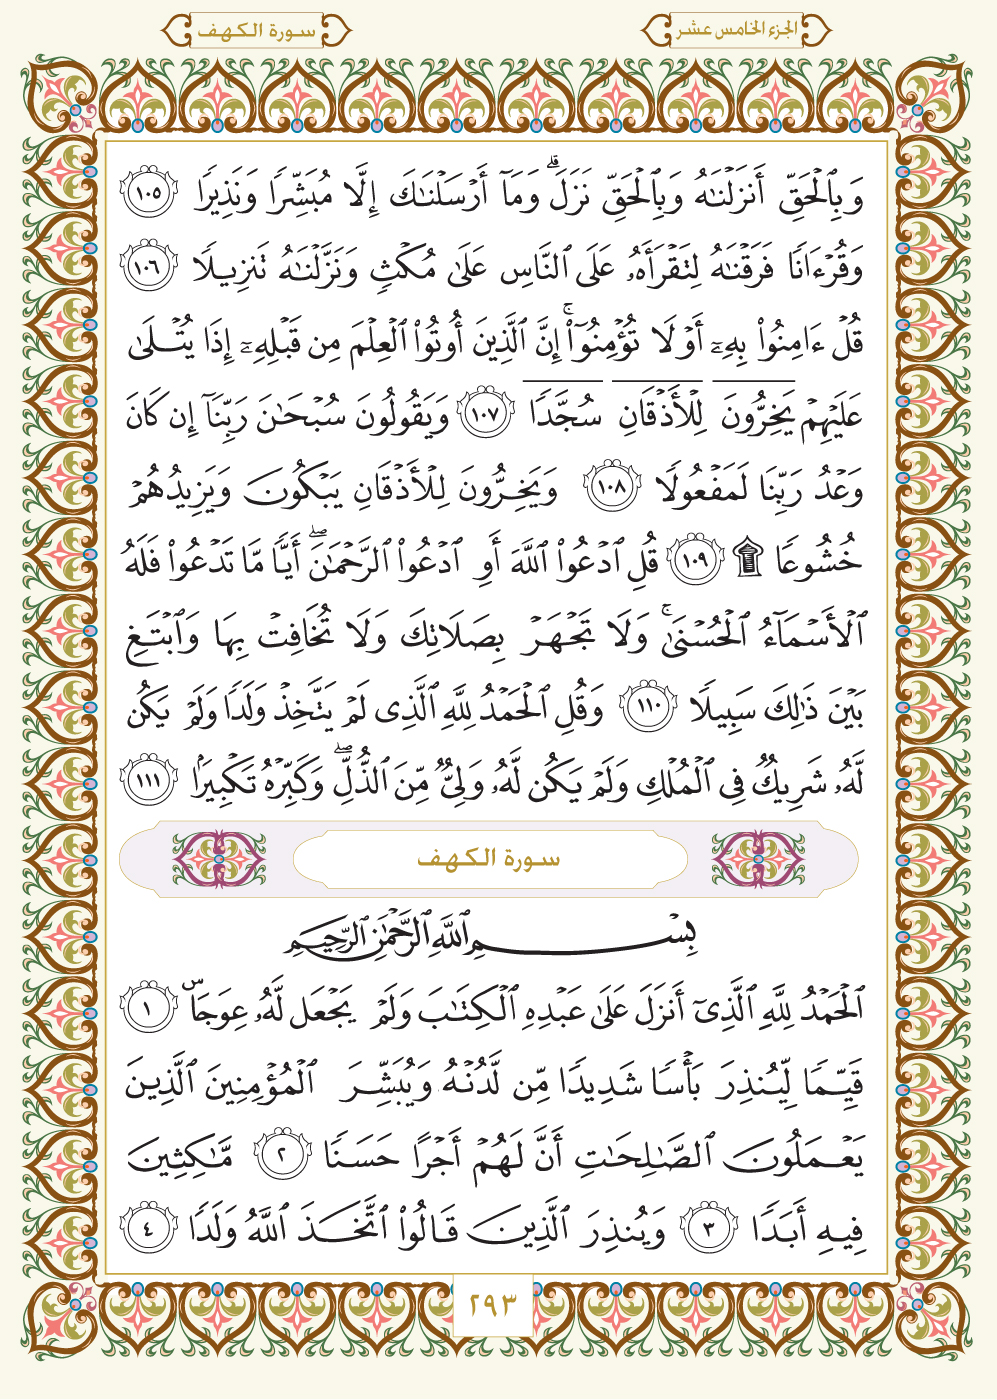 الجزء الخامس عشر
سورة الكهف
وَبِٱلْحَقِّ أَنزَلْنَٰهُ وَبِٱلْحَقِّ نَزَلَ ۗ وَمَآ أَرْسَلْنَٰكَ إِلَّا مُبَشِّرًا وَنَذِيرًا ١٠٥
وَقُرْءَانًا فَرَقْنَٰهُ لِتَقْرَأَهُۥ عَلَى ٱلنَّاسِ عَلَىٰ مُكْثٍ وَنَزَّلْنَٰهُ تَنزِيلًا ١٠٦
قُلْ ءَامِنُوا۟ بِهِۦٓ أَوْ لَا تُؤْمِنُوٓا۟ ۚ إِنَّ ٱلَّذِينَ أُوتُوا۟ ٱلْعِلْمَ مِن قَبْلِهِۦٓ إِذَا يُتْلَىٰ
عَلَيْهِمْ يَخِرُّونَ لِلْأَذْقَانِ سُجَّدًا ١٠٧ وَيَقُولُونَ سُبْحَٰنَ رَبِّنَآ إِن كَانَ
وَعْدُ رَبِّنَا لَمَفْعُولًا ١٠٨ وَيَخِرُّونَ لِلْأَذْقَانِ يَبْكُونَ وَيَزِيدُهُمْ
خُشُوعًا ۩ ١٠٩ قُلِ ٱدْعُوا۟ ٱللَّهَ أَوِ ٱدْعُوا۟ ٱلرَّحْمَٰنَ ۖ أَيًّا مَّا تَدْعُوا۟ فَلَهُ
ٱلْأَسْمَآءُ ٱلْحُسْنَىٰ ۚ وَلَا تَجْهَرْ بِصَلَاتِكَ وَلَا تُخَافِتْ بِهَا وَٱبْتَغِ
بَيْنَ ذَٰلِكَ سَبِيلًا ١١٠ وَقُلِ ٱلْحَمْدُ لِلَّهِ ٱلَّذِى لَمْ يَتَّخِذْ وَلَدًا وَلَمْ يَكُن
لَّهُۥ شَرِيكٌ فِى ٱلْمُلْكِ وَلَمْ يَكُن لَّهُۥ وَلِىٌّ مِّنَ ٱلذُّلِّ ۖ وَكَبِّرْهُ تَكْبِيرًۢا ١١١
سورة الكهف
بِسْمِ ٱللَّهِ ٱلرَّحْمَٰنِ ٱلرَّحِيمِ
ٱلْحَمْدُ لِلَّهِ ٱلَّذِىٓ أَنزَلَ عَلَىٰ عَبْدِهِ ٱلْكِتَٰبَ وَلَمْ يَجْعَل لَّهُۥ عِوَجَاۜ ١
قَيِّمًا لِّيُنذِرَ بَأْسًا شَدِيدًا مِّن لَّدُنْهُ وَيُبَشِّرَ ٱلْمُؤْمِنِينَ ٱلَّذِينَ
يَعْمَلُونَ ٱلصَّٰلِحَٰتِ أَنَّ لَهُمْ أَجْرًا حَسَنًا ٢ مَّٰكِثِينَ
فِيهِ أَبَدًا ٣ وَيُنذِرَ ٱلَّذِينَ قَالُوا۟ ٱتَّخَذَ ٱللَّهُ وَلَدًا ٤
٢٩٣